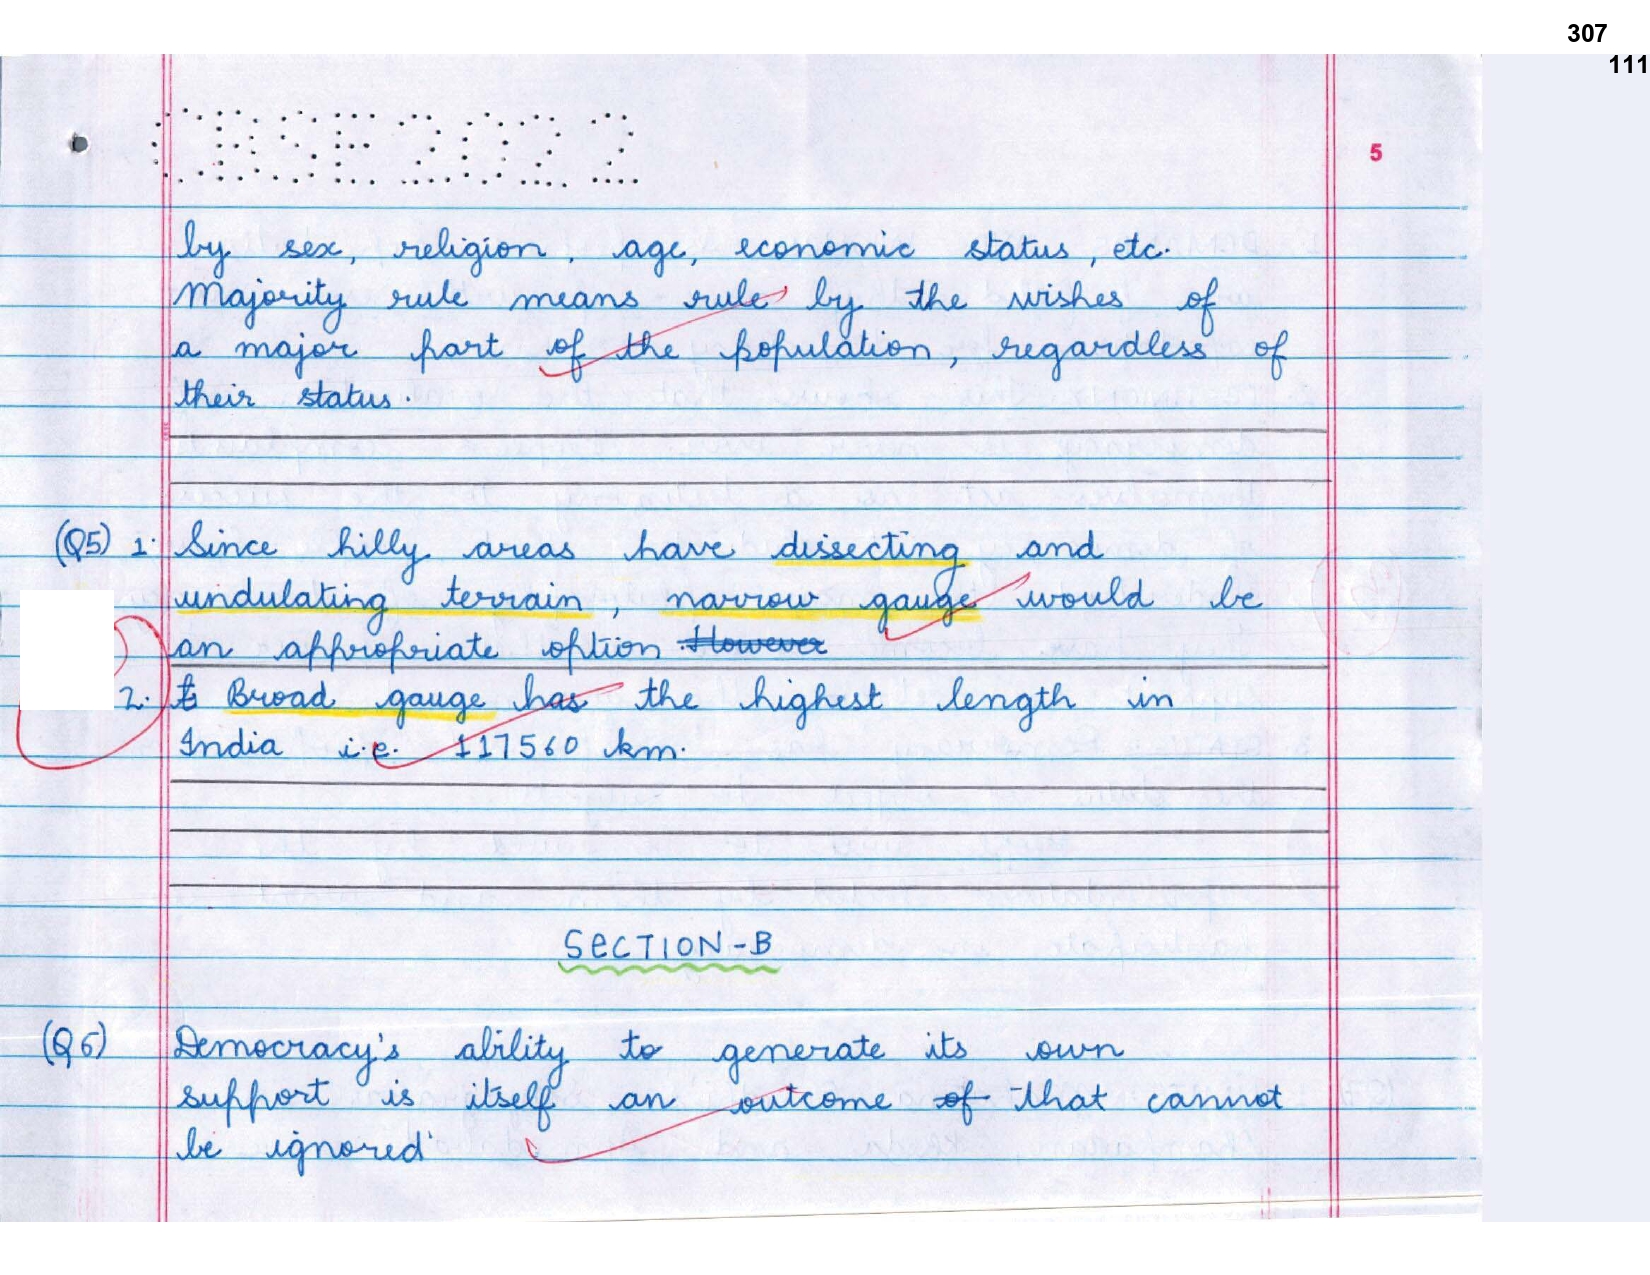 307
111
CBSE 2022
5
by sex, religion, age, economic status, etc.
Majority rule means rule by the wishes of
a major part of the population, regardless of
their status.
(Q5) 1. Since hilly areas have dissecting and
undulating terrain, narrow gauge would be
an appropriate option However
2. Broad gauge has the highest length in
India i.e. 117560 km.
SECTION-B
(Q6) Democracy's ability to generate its own
support is itself an outcome of that cannot
be ignored'